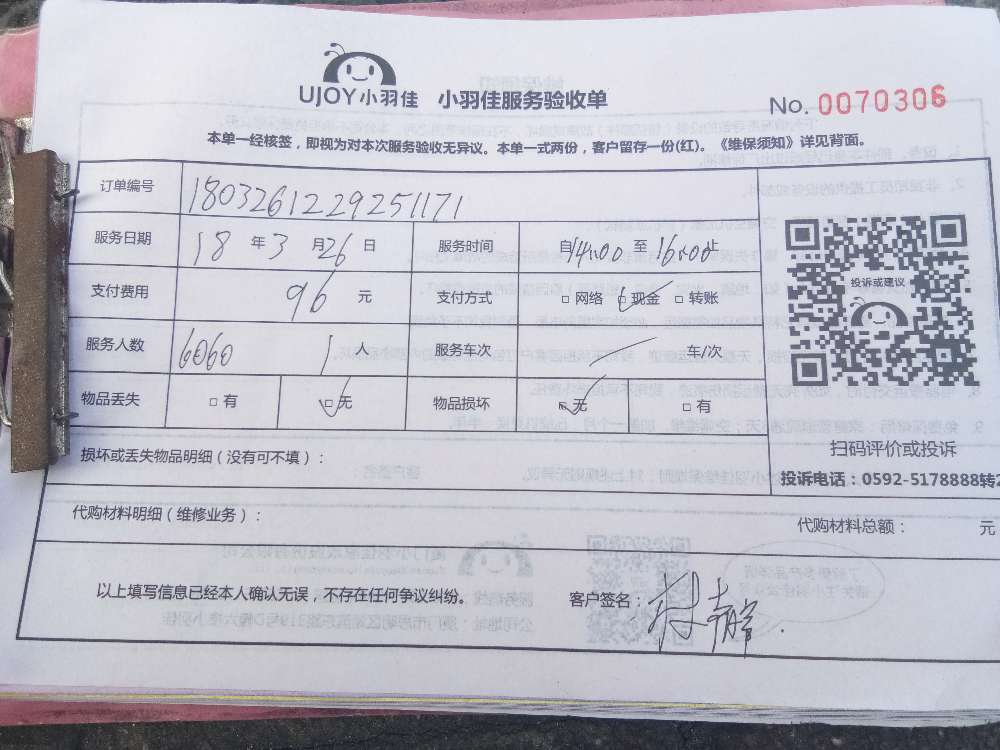 UJOY小羽佳 小羽佳服务验收单
No. 0070306
本单一经核签，即视为对本次服务验收无异议。本单一式两份，客户留存一份(红)。《维保须知》详见背面。
订单编号 1803261229251171
服务日期 18 年 3 月 26 日 服务时间 自14:00 至 16:00止
支付费用 96 元 支付方式 □ 网络 □ 现金 □ 转账
投诉或建议
服务人数 6060 1 人 服务车次 车/次
物品丢失 □ 有 □ 无 物品损坏 □ 无 □ 有
扫码评价或投诉
损坏或丢失物品明细（没有可不填）：
投诉电话：0592-5178888转2
代购材料明细（维修业务）：
代购材料总额： 元
以上填写信息已经本人确认无误，不存在任何争议纠纷。 客户签名：